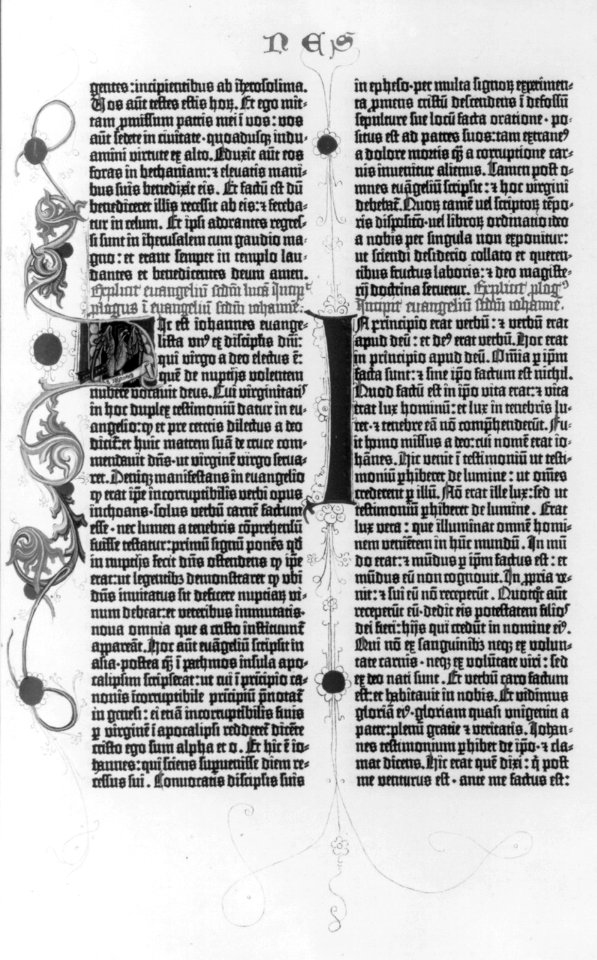 N E S
gentes: incipientibus ab iherosolima.
Vos aūt testes estis hoꝝ. Et ego mit-
tam ꝓmissum patris mei ī vos: vos
aūt sedete in civitate · quoadusqꝫ indu-
amini virtute ex alto. Eduxit aūt eos
foras in bethaniam: ⁊ elevatis mani-
bus suis benedixit eis. Et factū est dū
benediceret illis recessit ab eis: ⁊ fereba-
tur in celum. Et ipsi adorantes regres-
si sunt in iherusalem cum gaudio ma-
gno: et erant semper in templo lau-
dantes et benedicentes deum amen.
Explicit euangeliū scdm̄ lucā Incipt
plogus ī euangeliū scdm̄ iohannē.
Hic est iohannes euange-
lista vnꝰ ex discipłis dn̄i:
qui virgo a deo electus ē:
quē de nuptijs volentem
nubere vocauit deus. Cui virginitatꝭ
in hoc duplex testimoniū datur in eu-
angelio: ꝙ et pre ceteris dilectus a deo
dicit̃: et huic matrem suā de cruce com-
mendauit dn̄s · ut virginē virgo serua-
ret. Deniqꝫ manifestans in euangelio
ꝙ erat ip̄e incorruptibilis verbi opus
inchoans · solus verbū carnē factum
esse · nec lumen a tenebris cōprehensū
fuisse testatur: primū signū ponēs qd̄
in nuptijs fecit dn̄s ostendens ꝙ ip̄e
erat: ut legentibꝫ demonstraret ꝙ vbi
dn̄s inuitatus sit deficere nuptiaꝝ vi-
num debeat: et veteribus immutatis ·
noua omnia que a cristo instituunt̃
appareāt. Hoc aūt euāgeliū scripsit in
asia · postea ꝙ ī pathmos insula apo-
calipsim scripserat: ut cui ī pṙncipio ca-
nonis īcorruptibile pṙncipiū p̄notat̃
in genesi: ei etiā incorruptibilis finis
ꝑ virginē ī apocalipsi redderet̃ dicēte
cristo ego sum alpha et o. Et hic ē io-
hannes: qui sciens supuenisse diem re-
cessus sui. Conuocatis discipłis suis
in epheso · per multa signoꝝ exꝑimen-
ta ꝓmens cristū descendens ī defossū
sepulture sue locū facta oratione · po-
situs est ad patres suos: tam extraneꝰ
a dolore mortis q̄ȝ a corruptione car-
nis inuenitur alienus. Tamen post o-
mnes euāgeliū scripsit: ⁊ hoc virgini
debebat̃. Quoꝝ tamē vel scriptoꝝ tēpo-
ris dispositō · vel libroꝝ ordinatio ideo
a nobis per singula non exponitur:
ut sciendi desiderio collato et queren-
tibus fructus laboris: ⁊ deo magiste-
rij doctrina seruetur. Explicit plogꝰ
Incipit euangeliū scdm̄ iohannē.
In principio erat verbū: ⁊ verbū erat
apud deū: et deꝰ erat verbū. Hoc erat
in principio apud deū. Omīa ꝑ ip̄m
facta sunt: ⁊ sine ip̄o factum est nichil.
Quod factū est in ip̄o vita erat: ⁊ vita
erat lux hominū: et lux in tenebris lu-
cet · ⁊ tenebre eā nō cōprehenderūt. Fu-
it homo missus a deo: cui nomē erat io-
hānes. Hic venit ī testimoniū ut testi-
moniū ꝑhiberet de lumine: ut om̄es
crederent ꝑ illū. Nō erat ille lux: sed ut
testimoniū ꝑhiberet de lumine. Erat
lux vera: que illuminat omnē homi-
nem venientem in hūc mundū. In mū-
do erat: ⁊ mūdus ꝑ ip̄m factus est: et
mūdus eū non cognouit. In ꝓpria ve-
nit: ⁊ sui eū nō receperūt. Quotq̄t aūt
receperūt eū · dedit eis potestatem filioꝭ
dei fieri: hijs qui credūt in nomine eiꝰ.
Qui nō ex sanguinibꝫ neqꝫ ex volun-
tate carnis · neqꝫ ex volūtate viri: sed
ex deo nati sunt. Et verbū caro factum
est: et habitauit in nobis. Et vidimus
gloriā eiꝰ · gloriam quasi vnigeniti a
patre: plenū gratie ⁊ veritatis. Iohan-
nes testimonium ꝑhibet de ip̄o · ⁊ cla-
mat dicens. Hic erat quē dixi: q̇ post
me venturus est · ante me factus est: